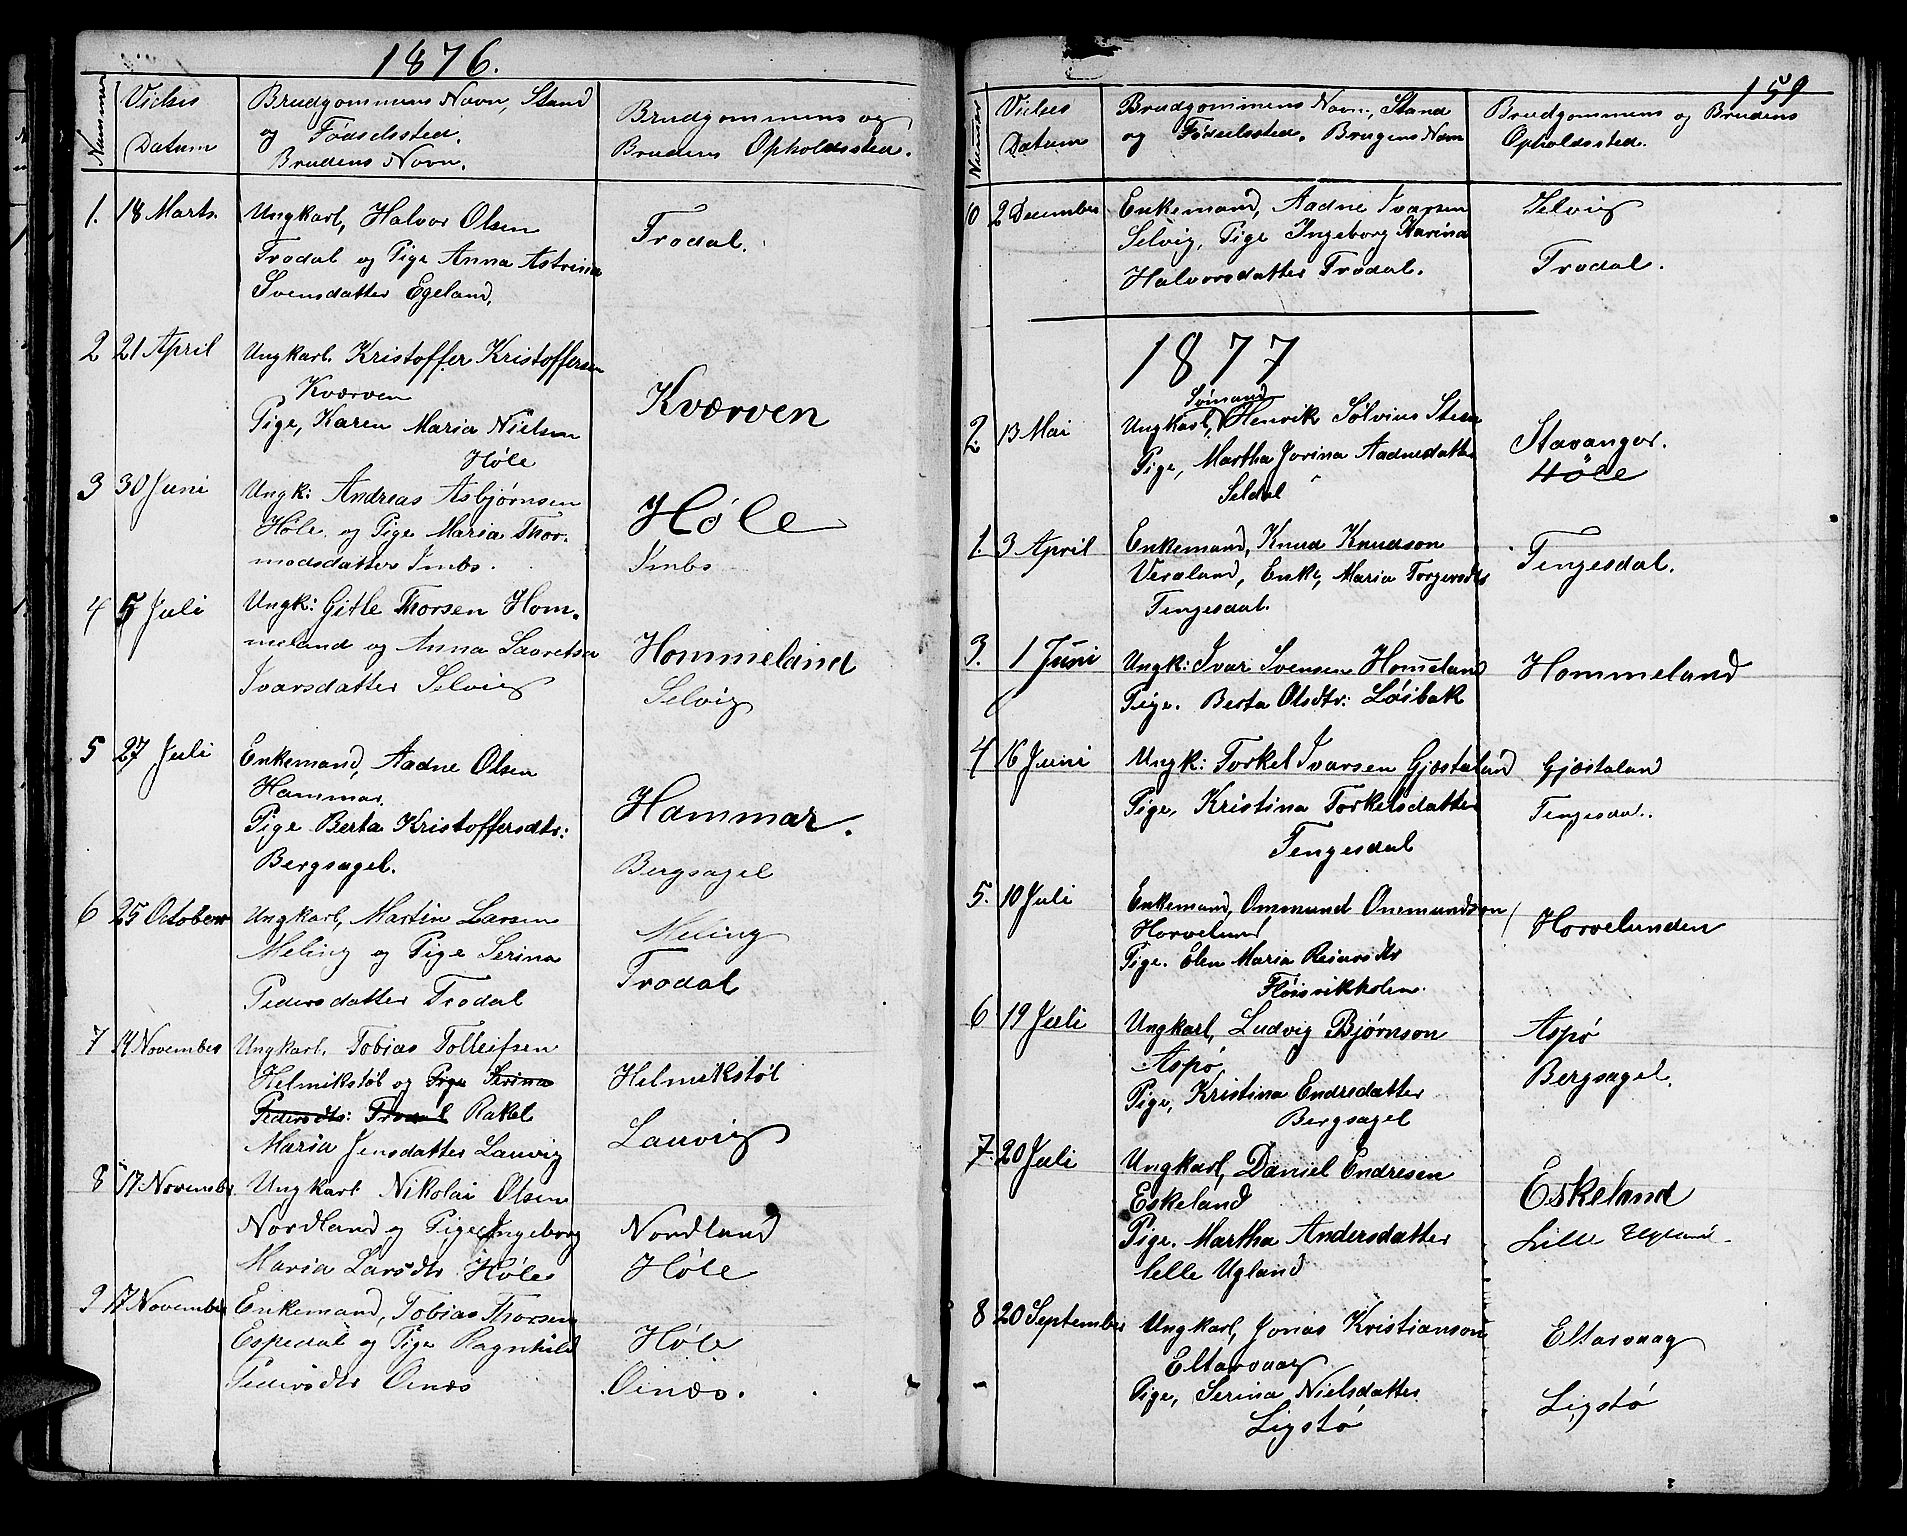 1876.
Nummer
Vielses
Datum
Brudgommens Navn, Stand
og Fødselssted.
Brudens Navn.
Brudgommens og
Brudens Opholdssted.
1. 18 Marts.
Ungkarl, Halvor Olsen
Trodal og Pige Anna Astrina
Svensdatter Egeland,
Trodal.
2 21 April
Ungkarl. Kristoffer Kristoffersen
Kværven
Pige, Karen Maria Nielsen
Høle
Kværven
3 30 Juni
Ungk: Andreas Asbjørnsen
Høle. og Pige Maria Thor-
modsdatter Imbs.
Høle
Imbs
4 5 Juli
Ungk: Gitle Thorsen Hom-
meland og Anna Lavretsa
Ivarsdatter Selvig
Hommeland
Selvig
5 27 Juli
Enkemand, Aadne Olsen
Hammar.
Pige Berta Kristoffersdtr:
Bergsagel.
Hammar.
Bergsagel
6 25 October
Ungkarl, Martin Larsen
Meling og Pige Serina
Pedersdatter Trodal
Meling
Trodal
7 14 November
Ungkarl. Tobias Tolleifsen
Helmikstøl og Pige Serina
Pedersdtr: Trodal Rakel
Maria Jensdatter Lauvig
Helmikstøl
Lauvig
8 17 Novembr
Ungkarl Nikolai Olsen
Nordland og Pige Ingeborg
Maria Larsdtr Høle
Nordland
Høle
9 17 November
Enkemand, Tobias Thorsen
Espedal og Pige Ragnhild
Pedersdtr Oinæs
Høle
Oinæs.
159
Nummer
Vielses
Datum
Brudgommens Navn, Stand
og Fødselssted. Brugens Navn
Brudgommens og Brudens
Opholdssted.
10 2 December
Enkemand, Aadne Ivarsen
Selvig, Pige Ingeborg Karina
Halvorsdatter Trodal.
Selvig
Trodal.
1877
2. 13 Mai
Sømand
Ungkarl, Henrik Sølvius Steen
Pige, Martha Jorina Aadnesdatter
Seldal
Stavanger.
Høle
1. 3 April
Enkemand, Knud Knudson
Veraland, Enke, Maria Torgersdtr
Tengesdal.
Tengesdal.
3. 1 Juni
Ungk: Ivar Svensen Homeland
Pige. Berta Olsdtr: Løibak
Hommeland
4 16 Juni
Ungk: Torkel Ivarsen Gjøstaland
Pige, Kristina Torkelsdatter
Tengesdal
Gjøstaland
Tengesdal.
5. 10 Juli
Enkemand, Ommund Onemundson
Horvelund
Pige. Elen Maria Reiarsdtr
Fløisvikholm.
Horvelunden
6 19 Juli
Ungkarl, Ludvig Bjørnson
Aspø
Pige, Kristina Endresdatter
Bergsagel
Aspø
Bergsagel.
7. 20 Juli
Ungkarl, Daniel Endresen
Eskeland
Pige. Martha Andersdatter
lelle Ugland
Eskeland
Lille Ugland.
8 20 September
Ungkarl, Jonas Kristianson
Eltarvaag
Pige, Serina Nielsdatter
Ligstø
Eltarvaag
Ligstø